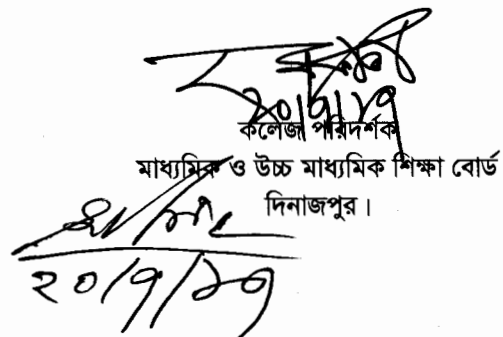 ২০/৭/১৭
কলেজ পরিদর্শক
মাধ্যমিক ও উচ্চ মাধ্যমিক শিক্ষা বোর্ড
দিনাজপুর।
২০/৭/১৭